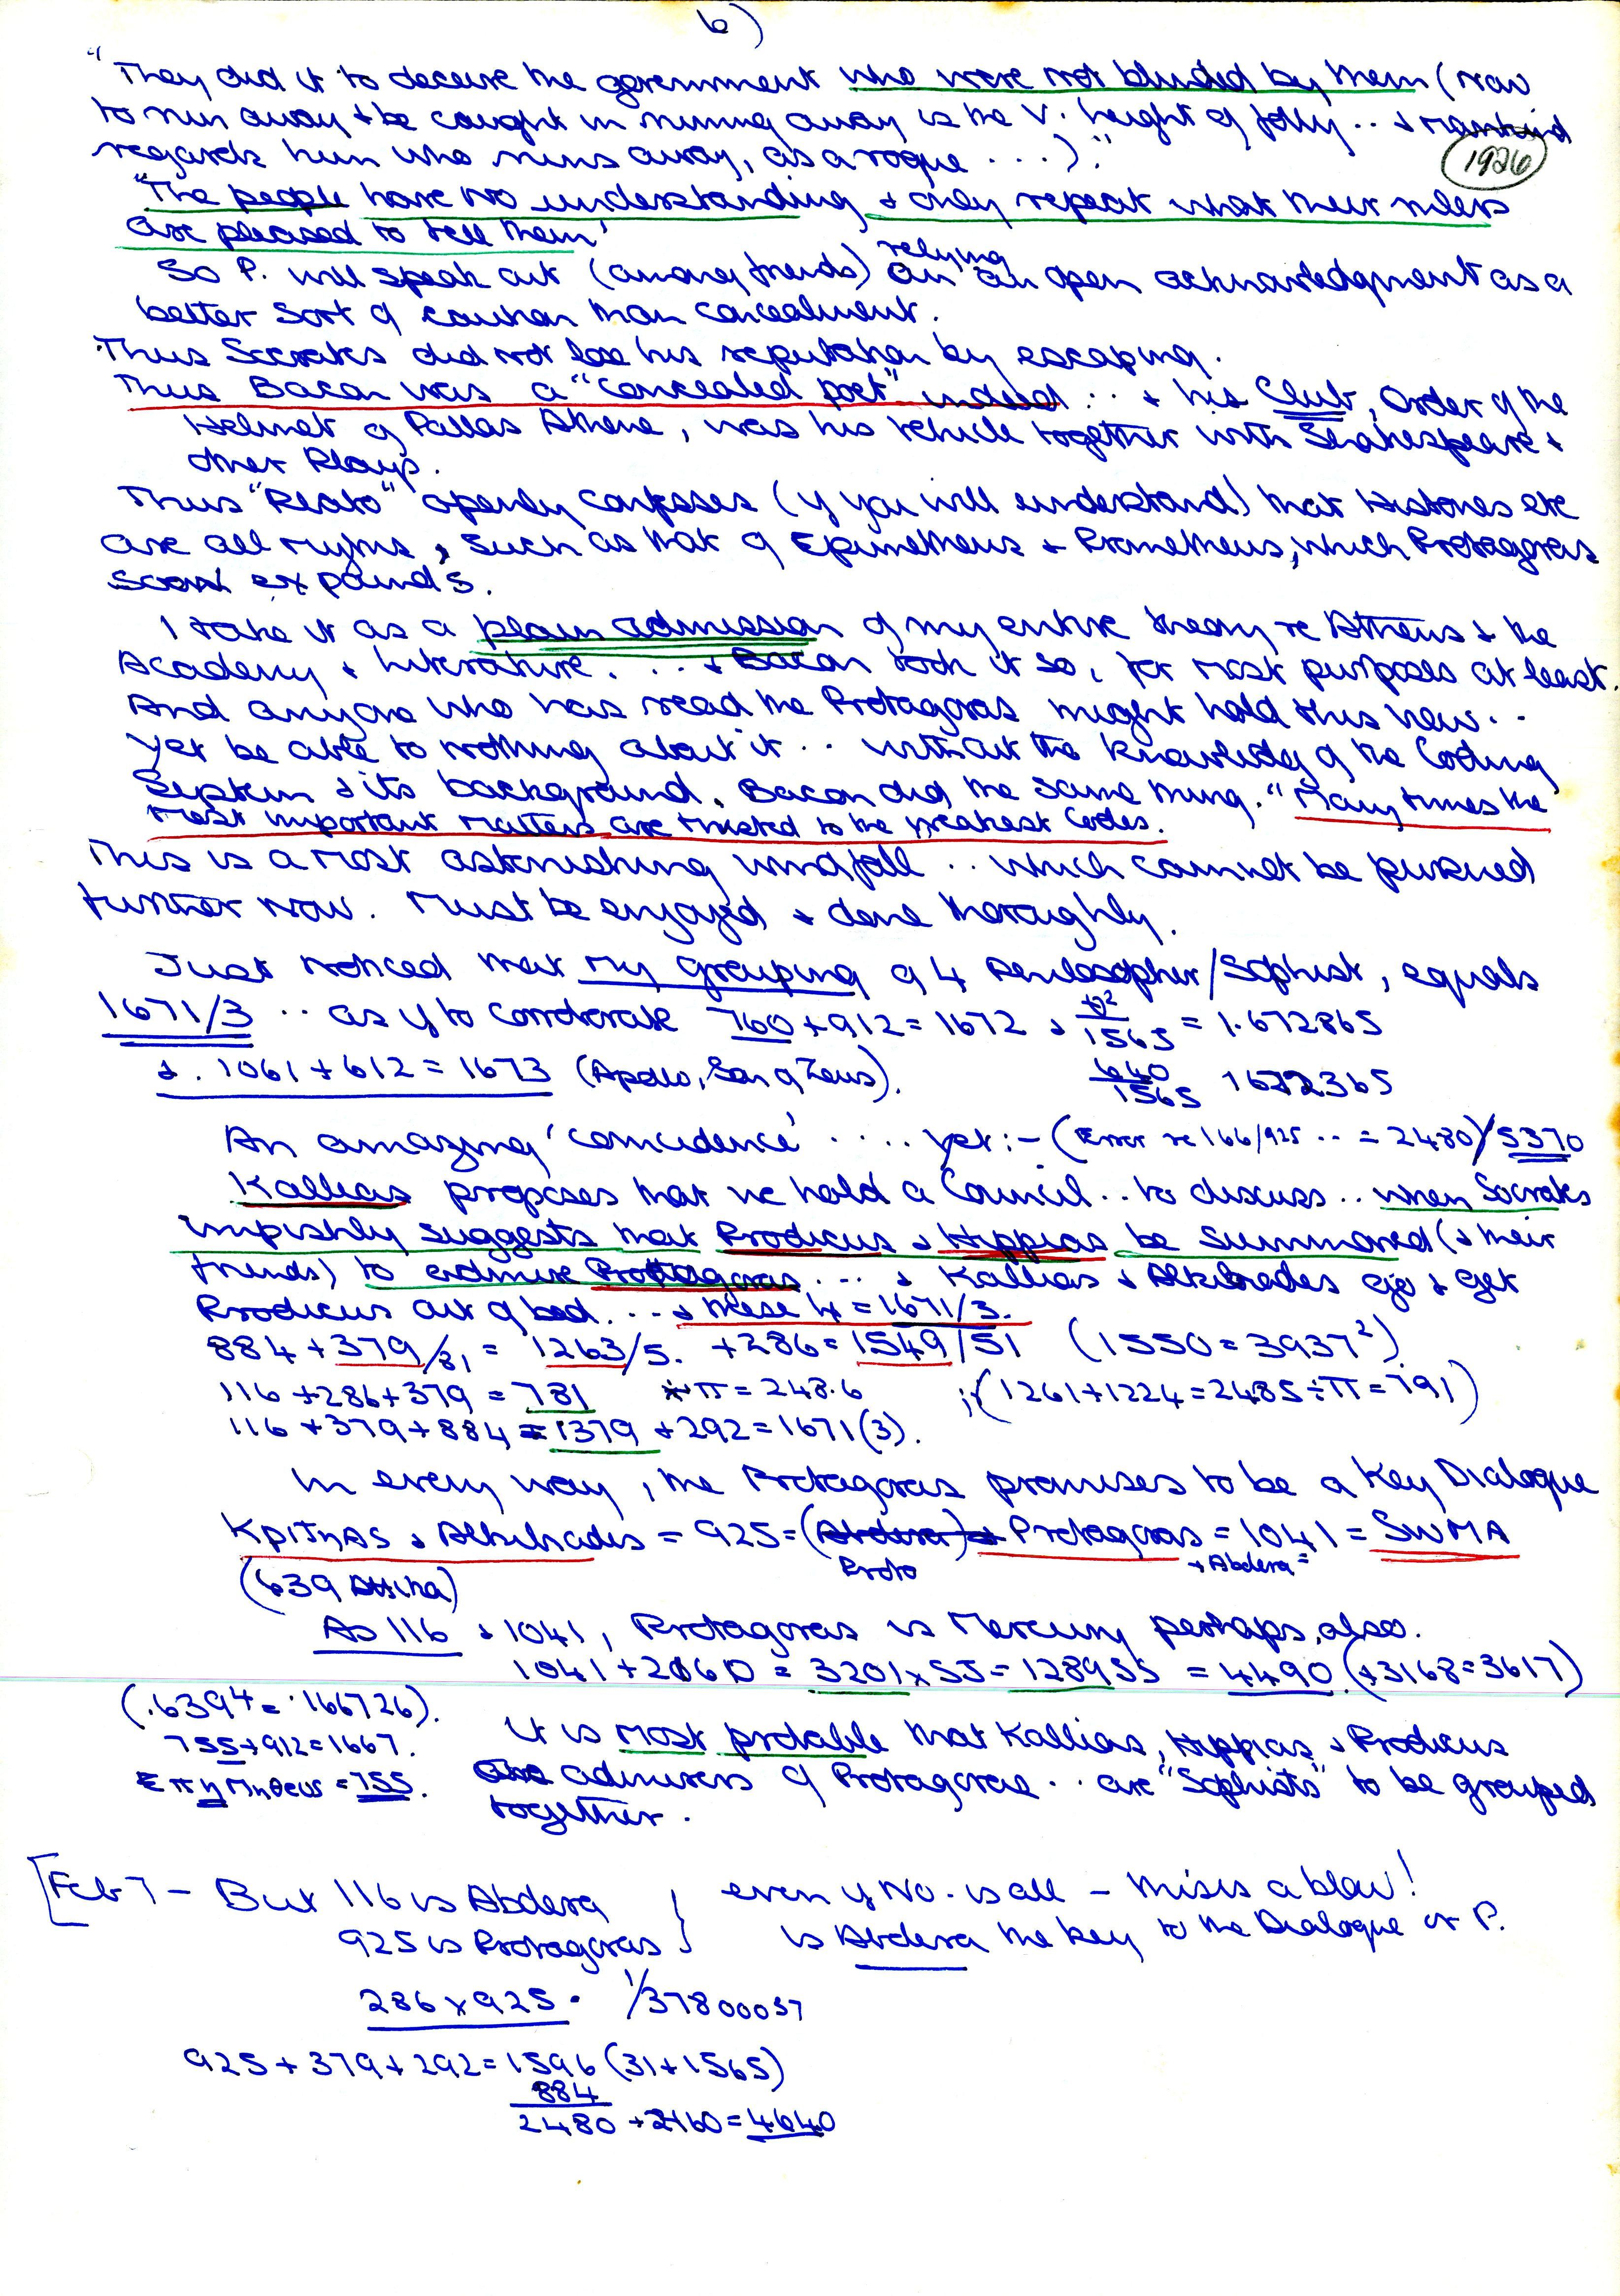 6)
"They did it to deceive the government who were not blinded by them (now
to run away & be caught in running away is the v. height of folly .. & mankind
regards him who runs away, as a rogue ...)."
1926
"The people have no understanding & only repeat what their rulers
are pleased to tell them'
So P. will speak out (among friends) relying on an open acknowledgment as a
better sort of caution than concealment.
Thus Socrates did not lose his reputation by escaping.
Thus Bacon was a "concealed poet" indeed .. & his Club, Order of the
Helmet of Pallas Athene, was his vehicle together with Shakespeare &
other Plays.
Thus "Plato" openly confesses (if you will understand) that Histories etc
are all myths, such as that of Epimetheus & Prometheus, which Protagoras
soon expounds.
I take it as a plain admission of my entire theory re Athens & the
Academy & Literature. ... & Bacon took it so, for most purposes at least.
And anyone who has read the Protagoras might hold this view..
yet be able to nothing about it .. without the knowledge of the Coding
System & its background. Bacon did the same thing. "Many times the
most important matters are trusted to the weakest Codes.
This is a most astonishing windfall .. which cannot be pursued
further now. Must be enjoyed & done thoroughly.
Just noticed that my grouping of 4 Philosopher/Sophist, equals
1671/3 .. as if to corroborate 760 + 912 = 1672 &
1565 = 1.672865
& . 1061 + 612 = 1673 (Apollo, Son of Zeus).
640
1565
An amazing 'coincidence' .... yet :- (Error re 166/925 .. = 2480)/5370
Kallias proposes that we hold a Council .. to discuss .. when Socrates
impishly suggests that Prodicus & Hippias be summoned (& their
friends) to admire Protagoras ... & Kallias & Alkibiades go & get
Prodicus out of bed ... & these 4 = 1671/3.
884 + 379/81 = 1263/5. + 286 = 1549/51 (1550 = 3937²)
116 + 286 + 379 = 781 π = 248.6 ; (1261 + 1224 = 2485 ÷ π = 791)
116 + 379 + 884 = 1379 + 292 = 1671(3).
In every way, the Protagoras promises to be a Key Dialogue
& Alkibiades = 925 = (Abdera) & Protagoras = 1041 = SWMA
Proto + Abdera =
(639 Attika)
As 116 & 1041, Protagoras is Mercury perhaps, also.
1041 + 2160 = 3201 x 55 = 128955 = 4490 (+3168 = 3617)
(.6394 = .166726).
755 + 912 = 1667.
= 755.
It is most probable that Kallias, Hippias & Prodicus
are admirers of Protagoras .. are "Sophists" to be grouped
together.
[Feb 7 - But 116 is Abdera } even if No. is all - this is a blow!
925 is Protagoras } is Abdera the key to the Dialogue or P.
286 x 925 . 1/37800037
925 + 379 + 292 = 1596 (31 + 1565)
884
2480 + 2160 = 4640